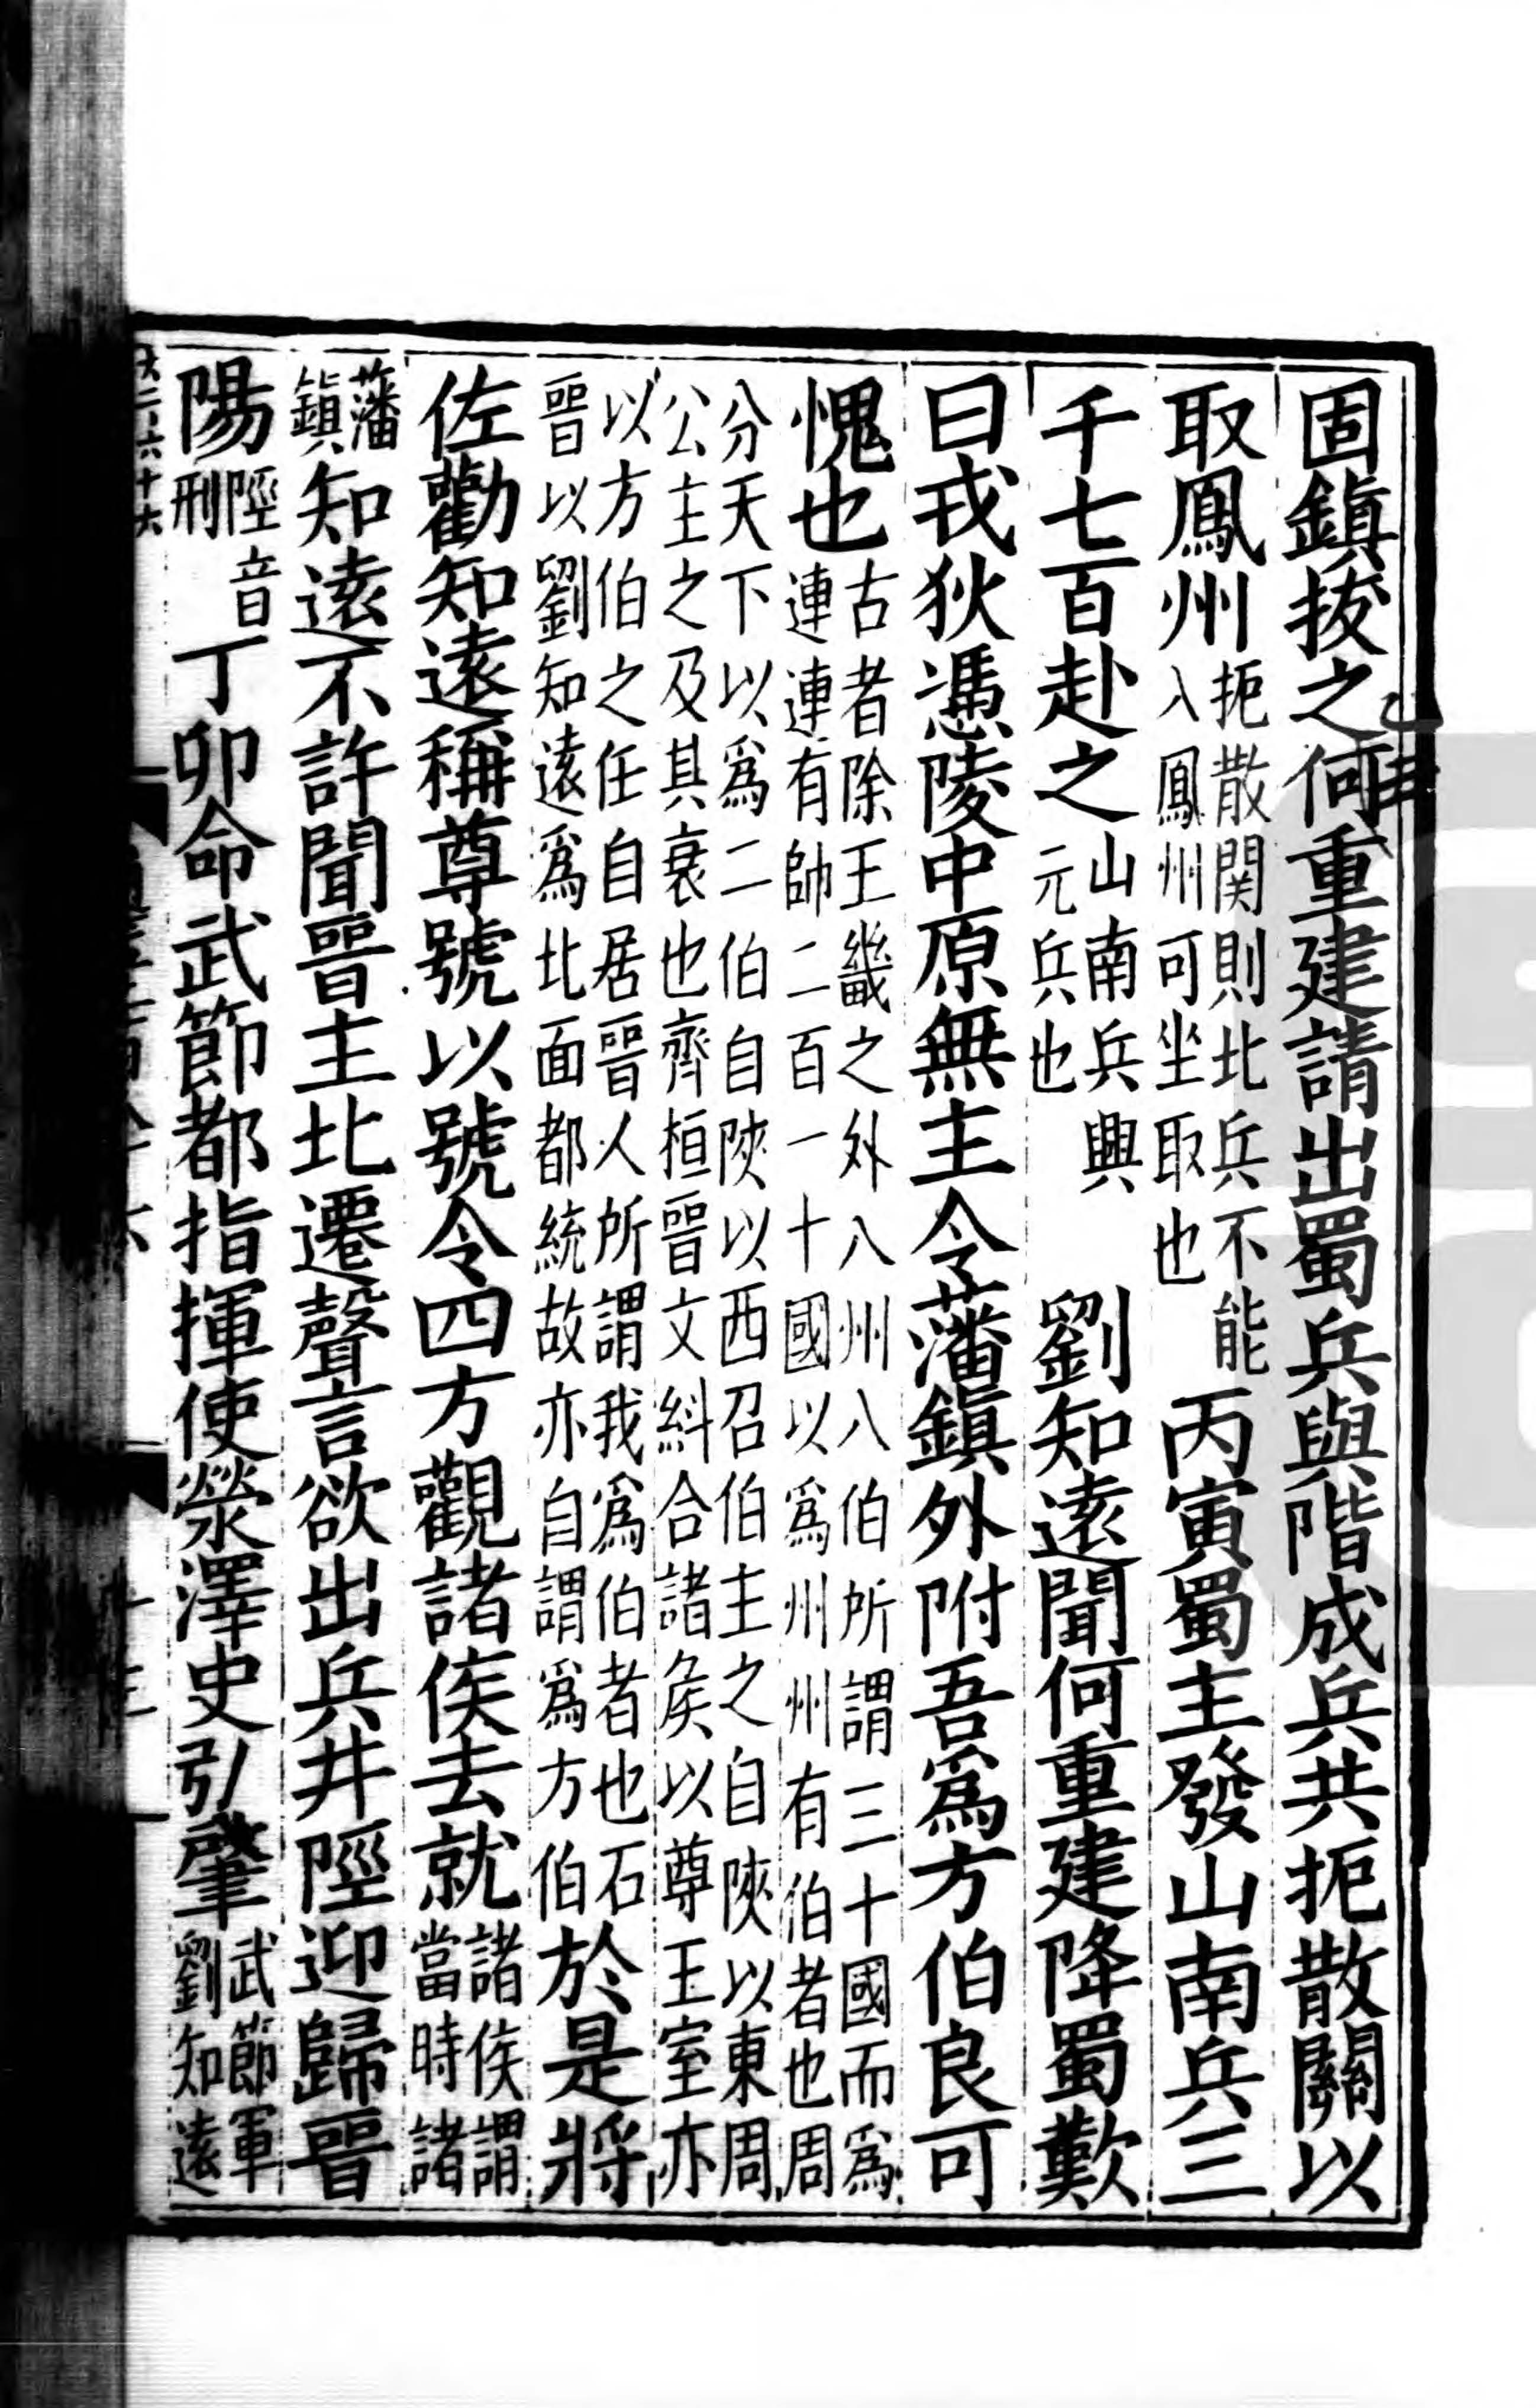 固鎮拔之何重建請出蜀兵與階成兵共扼散關以
取鳳州扼散関則北兵不能入鳳州可坐取也丙寅蜀主發山南兵三
千七百赴之山南兵興元兵也劉知遠聞何重建降蜀歎
曰戎狄憑陵中原無主令藩鎮外附吾爲方伯良可
愧也古者除王畿之外八州八伯所謂三十國而爲連連有帥二百一十國以爲州州有伯者也周
分天下以爲二伯自陝以西召伯主之自陝以東周公主之及其衰也齊桓晉文糾合諸矦以尊王室亦
以方伯之任自居晉人所謂我爲伯者也石晉以劉知遠爲北面都統故亦自謂爲方伯於是將
佐勸知遠稱尊號以號令四方觀諸侯去就諸侯謂當時諸
藩鎮知遠不許聞晉主北遷聲言欲出兵井陘迎歸晉
陽陘音刑丁卯命武節都指揮使滎澤史弘肇武節軍劉知遠